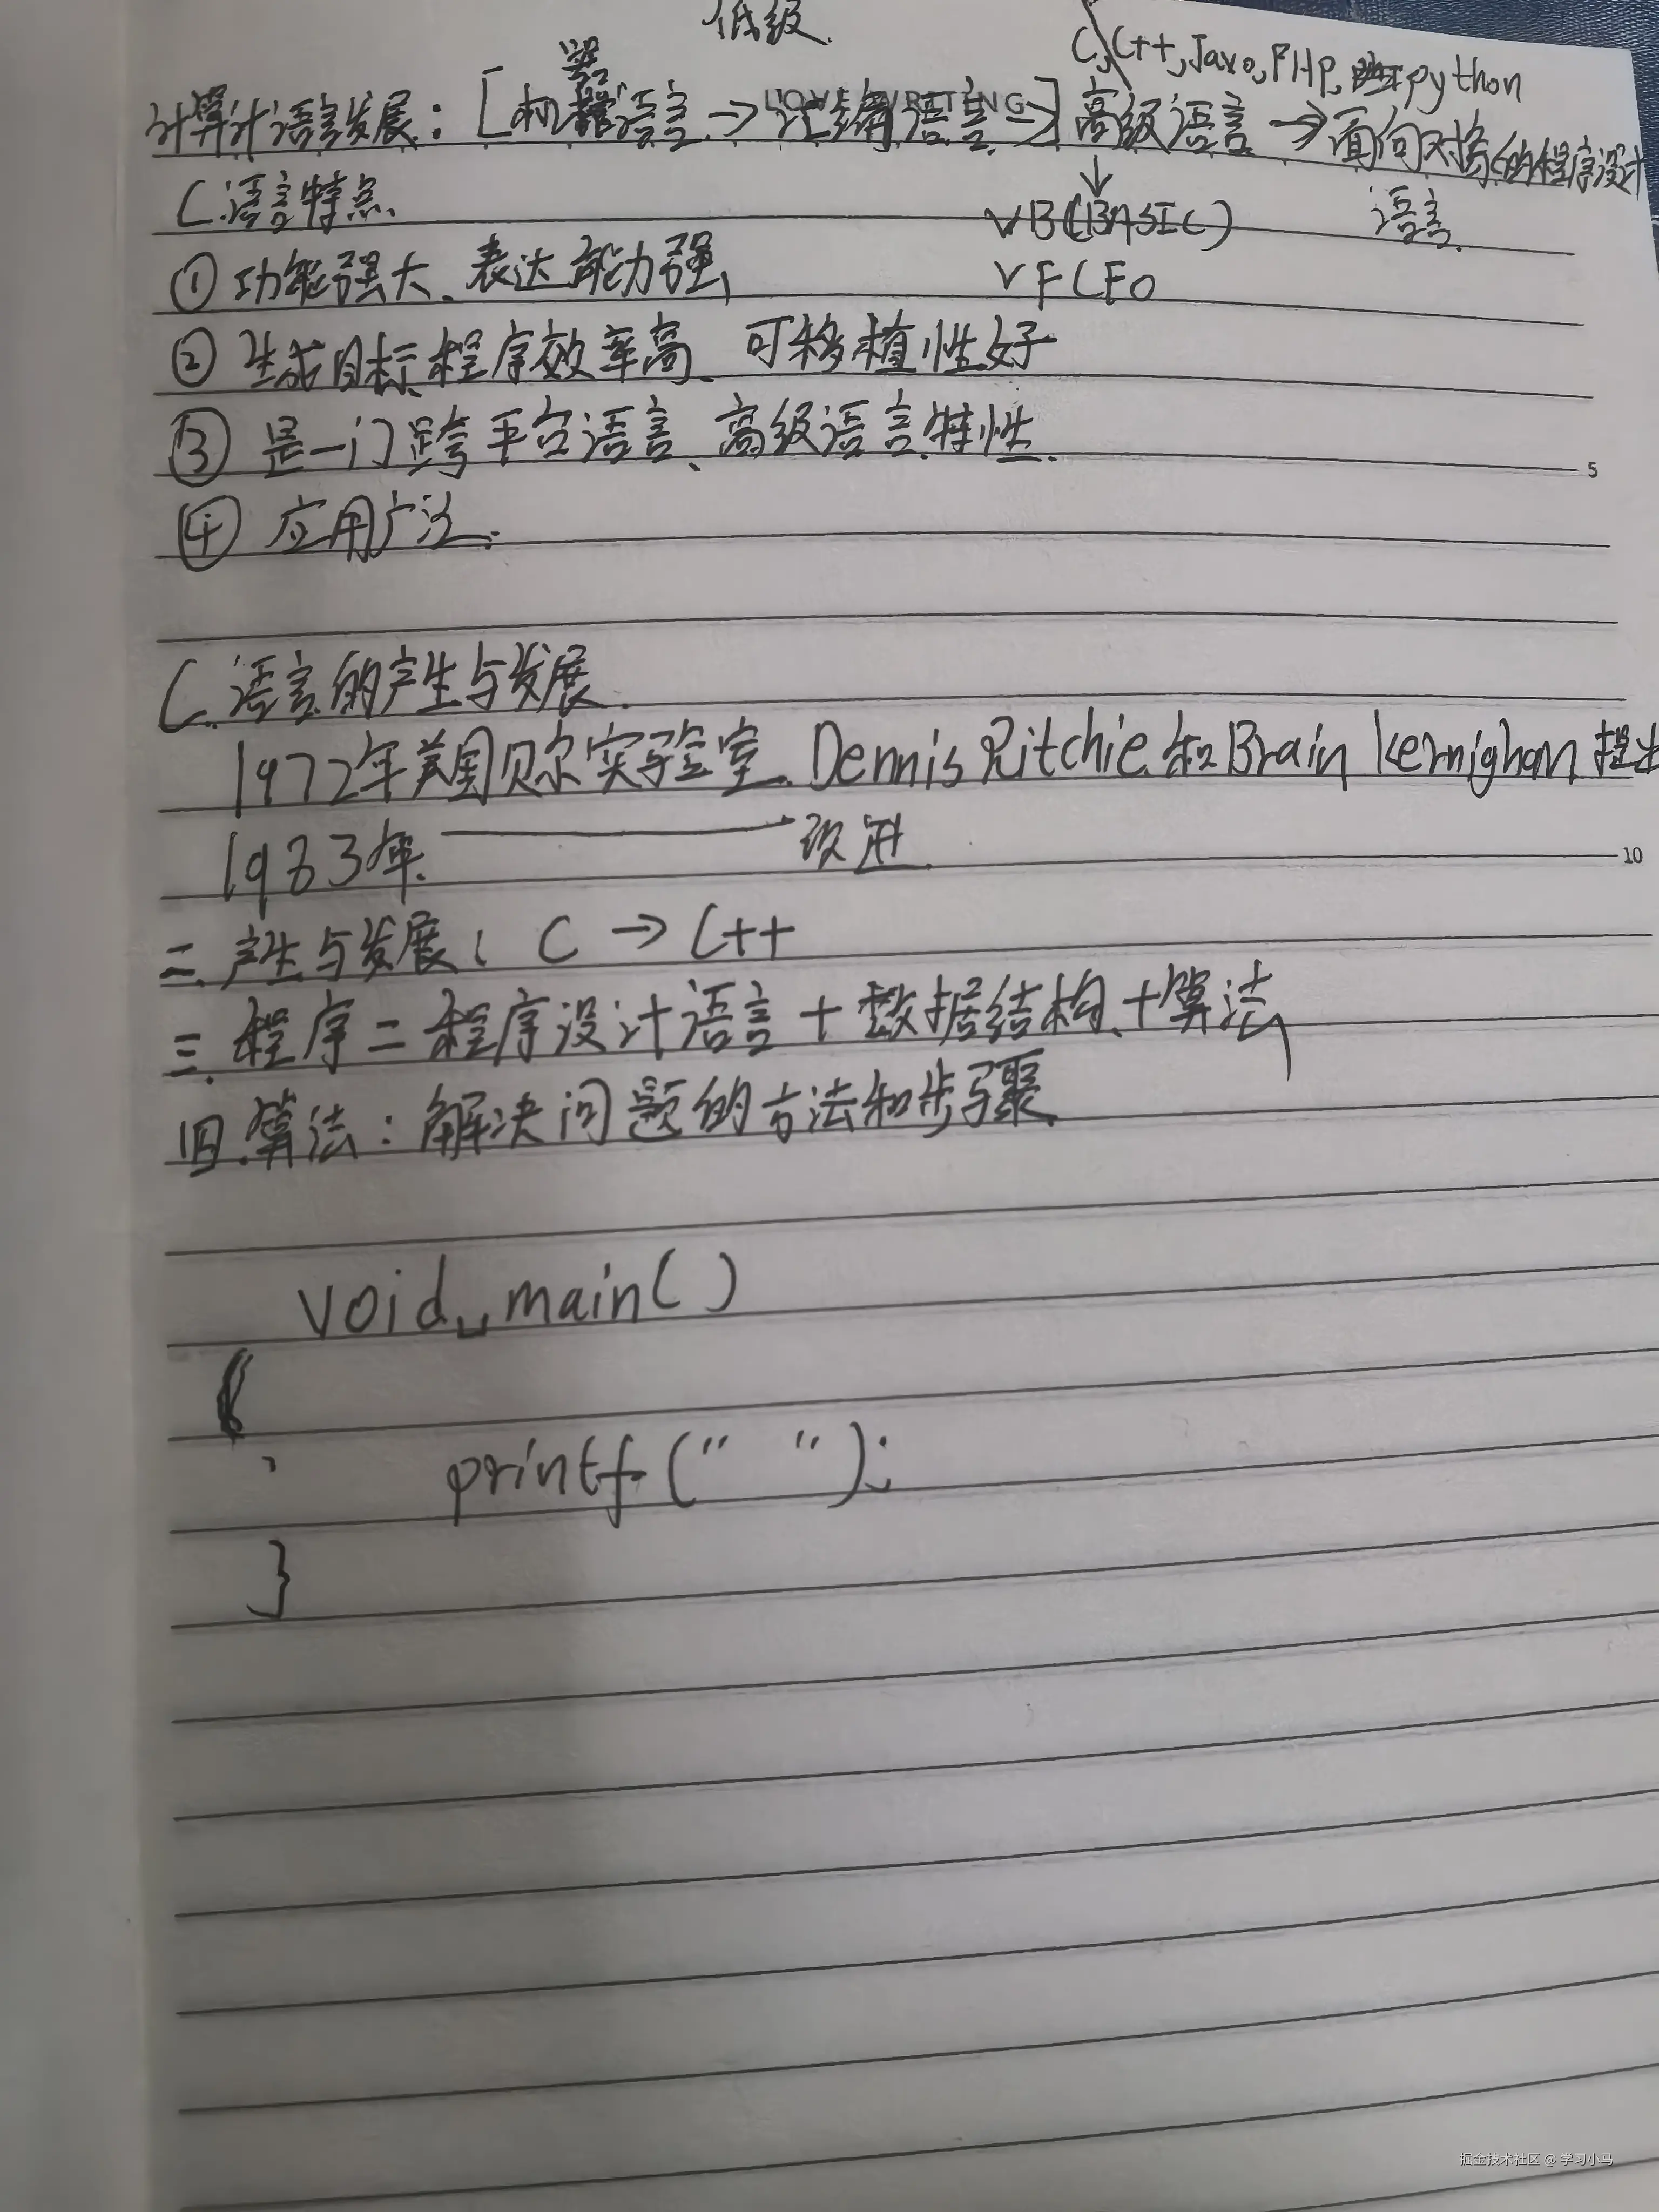 低级
C, C++, Java, PHP, python
器
计算计语言发展：[机器语言→汇编语言→]高级语言→面向对象的程序设计
LOVE WRITING
语言.
↓
C语言特点.
VB(BASIC)
①功能强大、表达能力强、
VFCFO
②生成目标程序效率高、可移植性好
③是一门跨平台语言、高级语言特性.
5
④应用广泛.
C语言的产生与发展.
1972年美国贝尔实验室.Dennis Ritchie.和Brain Kernighan提出
1983年.——改进.
10
二.产生与发展: C → C++
三.程序=程序设计语言+数据结构+算法,
四.算法：解决问题的方法和步骤.
void␣main()
{
printf("  ");
}
掘金技术社区 @ 学习小马